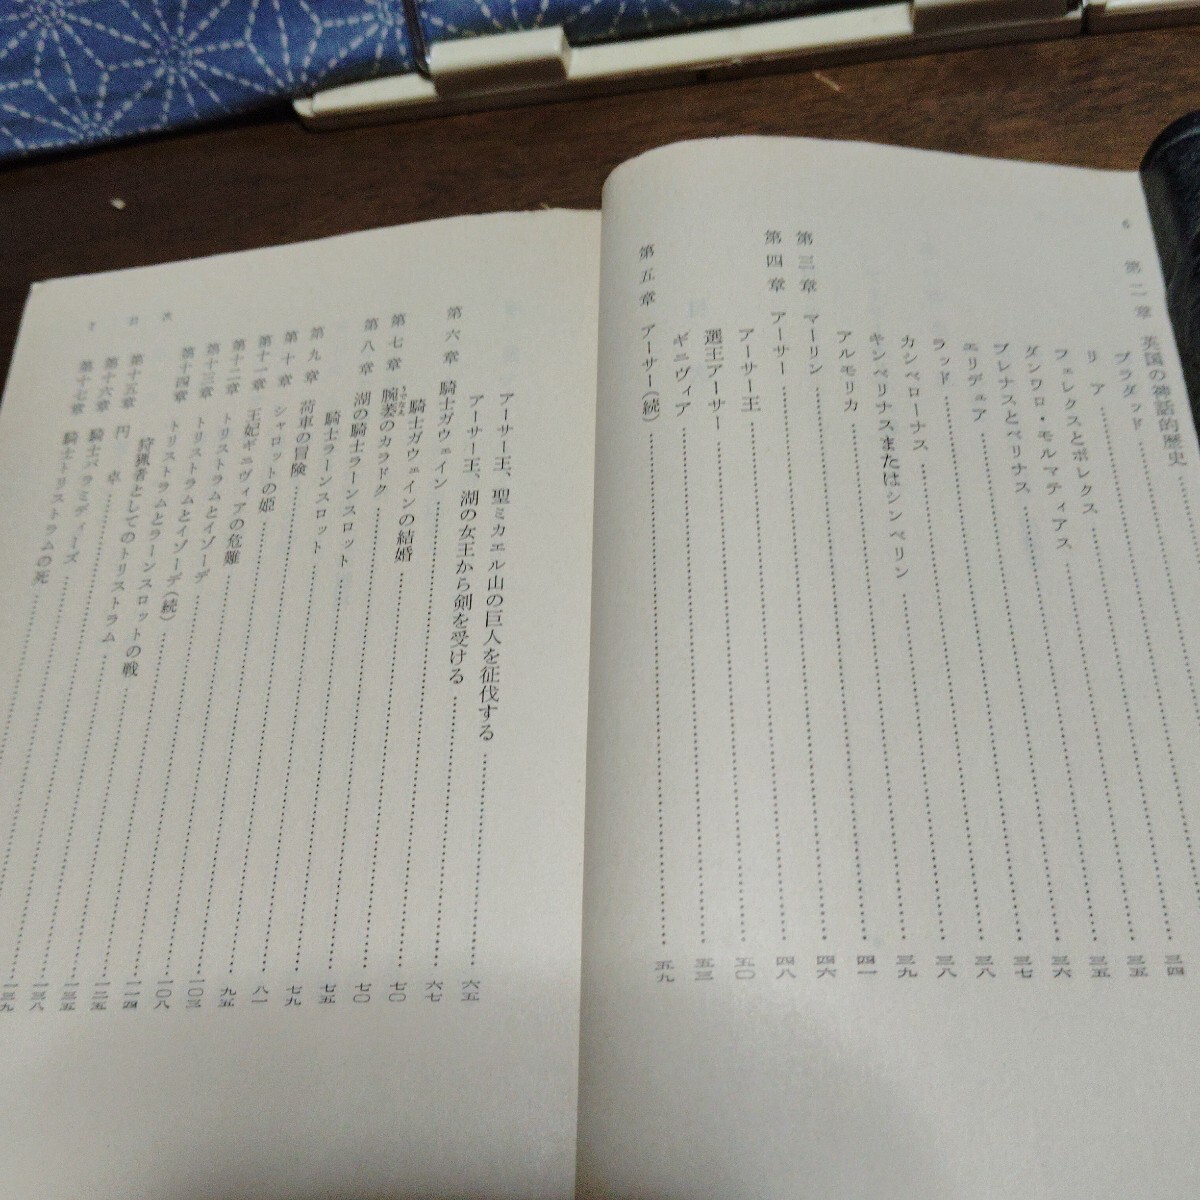 6
第二章 英国の神話的歴史
ブラダッド
リア
フェレクスとポレクス 三四
ダンワロ・モルマティアス 三五
ブレナスとベリナス 三五
エリデュア 三六
ラッド 三七
カシベローナス 三八
キンベリナスまたはシンベリン 三八
アルモリカ 三九
第三章 マーリン 四一
第四章 アーサー 四六
アーサー王 四八
選王アーサー 五〇
ギニヴィア 五三
第五章 アーサー(続) 五九
アーサー王、聖ミカエル山の巨人を征伐する 六五
アーサー王、湖の女王から剣を受ける 六七
第六章 騎士ガウェイン 七〇
騎士ガウェインの結婚 七〇
第七章 腕萎のカラドク 七五
第八章 湖の騎士ラーンスロット 七九
騎士ラーンスロット 八一
第九章 荷車の冒険 九五
第十章 シャロットの姫 一〇三
第十一章 王妃ギニヴィアの危難 一〇八
第十二章 トリストラムとイゾーデ 一一四
第十三章 トリストラムとイゾーデ(続) 一二五
第十四章 トリストラムとラーンスロットの戦 一三五
狩猟者としてのトリストラム 一三八
第十五章 円卓 一三九
第十六章 騎士パラミディーズ
第十七章 騎士トリストラムの死
7 目次